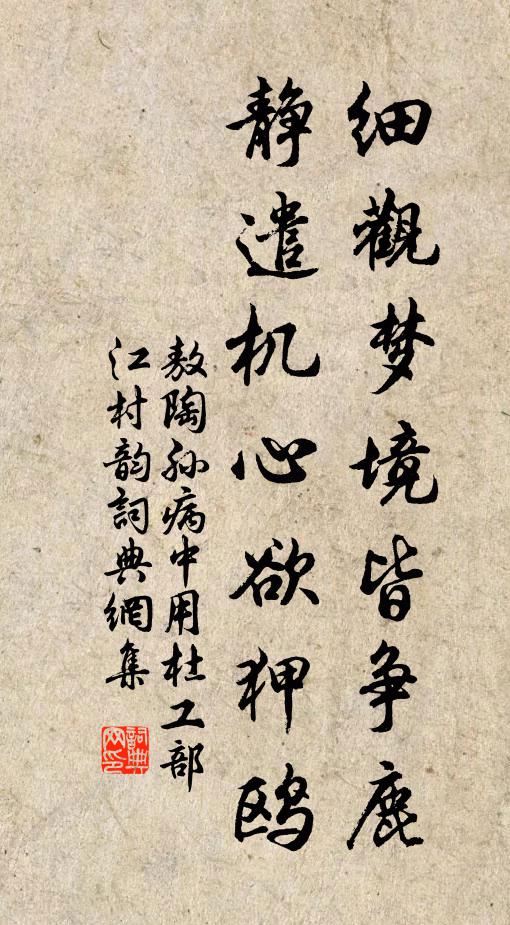 细觀梦境皆争鹿
静遣机心欲狎鸥
敖陶孙病中用杜工部
江村韵詞典網集
詞典网印